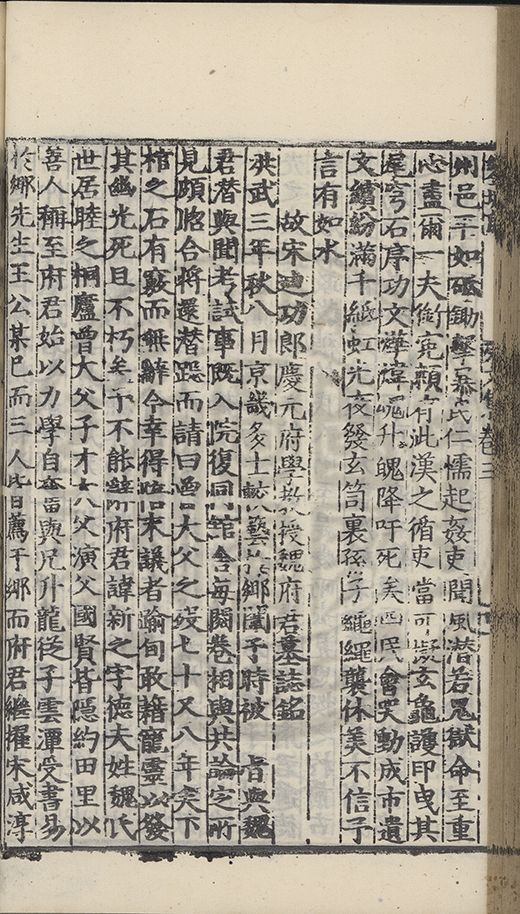 卷三
州邑平如砥鋤擊暴民仁懦起姦吏聞風潜若鬼獄命至重
心盡爾一夫銜寃顙有泚漢之循吏當可擬玄龜護印曳其
尾穹石序功文煒煒魂升魄降吁死矣四民會哭動成市遺
文繽紛滿千紙虹光夜發玄笥裏孫子繩繩襲休美不信子
言有如水
故宋迪功郎慶元府學教授魏府君墓誌銘
洪武三年秋八月京畿多士試藝於鄉闈予時被 旨與魏
君潜與聞考試事既入院復同館舍每閱卷相與共論定所
見頗脗合將還潜跽而請曰曾大父之歿七十又八年矣下
棺之石有竁而無辭今幸得陪末議者踰旬敢藉寵靈以發
其幽光死且不朽矣予不能辭府君諱新之字德夫姓魏氏
世居睦之桐廬曾大父子才大父演父國賢皆隱約田里以
善人稱至府君始以力學自奮嘗與兄升龍從子雲潭受書易
於鄉先生王公某已而三人皆薦于鄉而府君繼擢宋咸淳